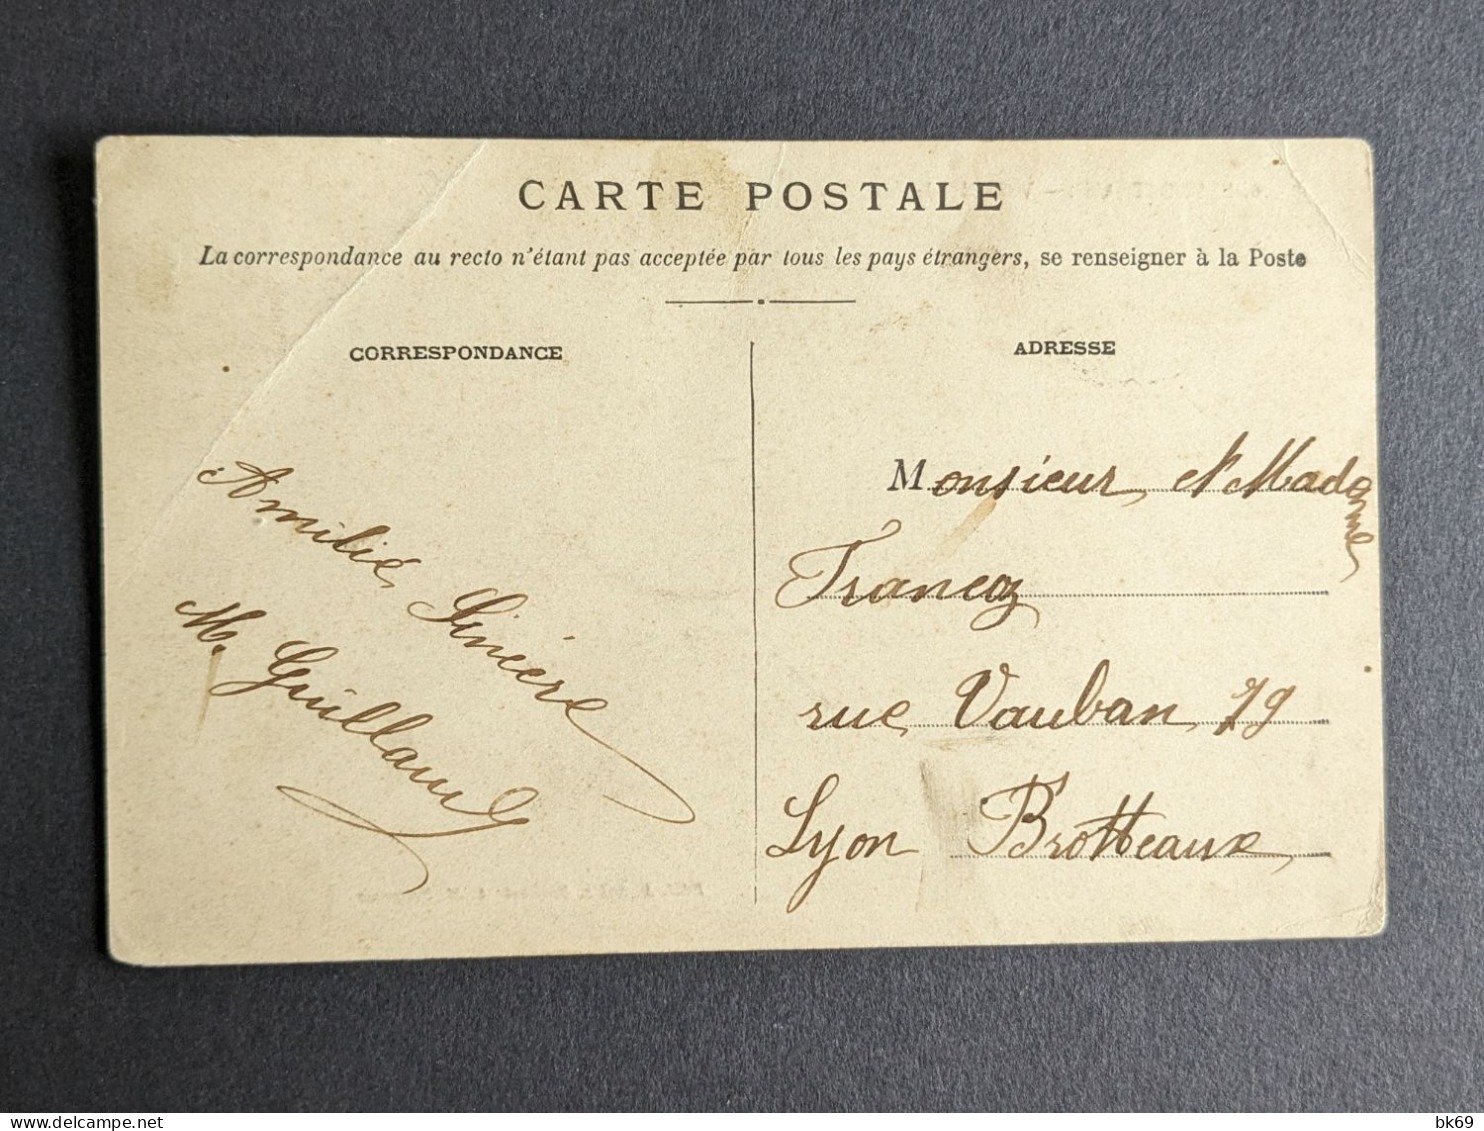 CARTE POSTALE
La correspondance au recto n'étant pas acceptée par tous les pays étrangers, se renseigner à la Poste
CORRESPONDANCE
Amitié Sincère
M. Guillaud
ADRESSE
Monsieur et Madame
Francoz
rue Vauban 79
Lyon Brotteaux
delcampe.net
bk69